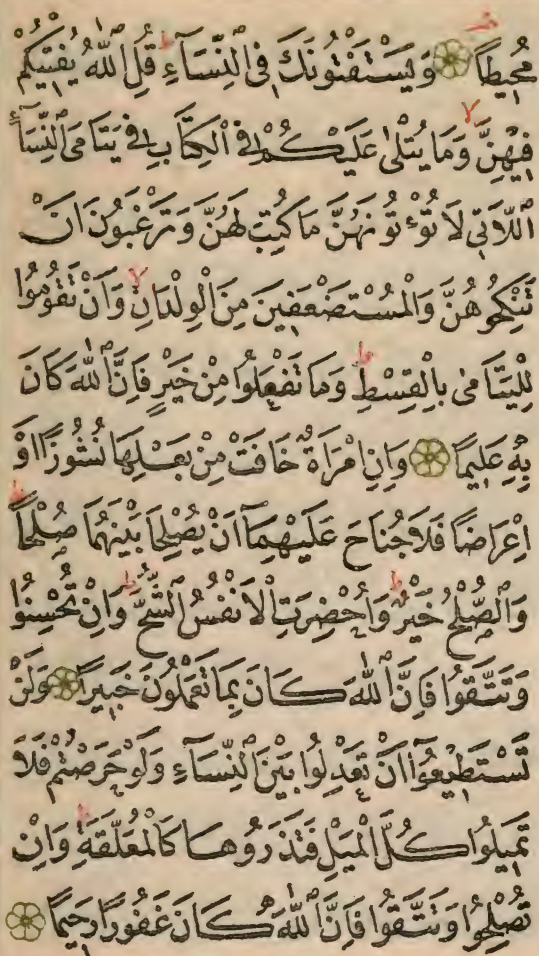 مُحِيطًا وَيَسْتَفْتُونَكَ فِي النِّسَآءِ قُلِ اللّٰهُ يُفْتِيكُمْ
فِيهِنَّ وَمَا يُتْلٰى عَلَيْكُمْ فِي الْكِتَابِ فِي يَتَامَى النِّسَآءِ
اللَّاتِي لَا تُؤْتُونَهُنَّ مَا كُتِبَ لَهُنَّ وَتَرْغَبُونَ اَنْ
تَنْكِحُوهُنَّ وَالْمُسْتَضْعَفِينَ مِنَ الْوِلْدَانِ وَاَنْ تَقُومُوا
لِلْيَتَامٰى بِالْقِسْطِ وَمَا تَفْعَلُوا مِنْ خَيْرٍ فَاِنَّ اللّٰهَ كَانَ
بِهِ عَلِيمًا وَاِنِ امْرَاَةٌ خَافَتْ مِنْ بَعْلِهَا نُشُوزًا اَوْ
اِعْرَاضًا فَلَا جُنَاحَ عَلَيْهِمَآ اَنْ يُصْلِحَا بَيْنَهُمَا صُلْحًا
وَالصُّلْحُ خَيْرٌ وَاُحْضِرَتِ الْاَنْفُسُ الشُّحَّ وَاِنْ تُحْسِنُوا
وَتَتَّقُوا فَاِنَّ اللّٰهَ كَانَ بِمَا تَعْمَلُونَ خَبِيرًا وَلَنْ
تَسْتَطِيعُوٓا اَنْ تَعْدِلُوا بَيْنَ النِّسَآءِ وَلَوْ حَرَصْتُمْ فَلَا
تَمِيلُوا كُلَّ الْمَيْلِ فَتَذَرُوهَا كَالْمُعَلَّقَةِ وَاِنْ
تُصْلِحُوا وَتَتَّقُوا فَاِنَّ اللّٰهَ كَانَ غَفُورًا رَحِيمًا